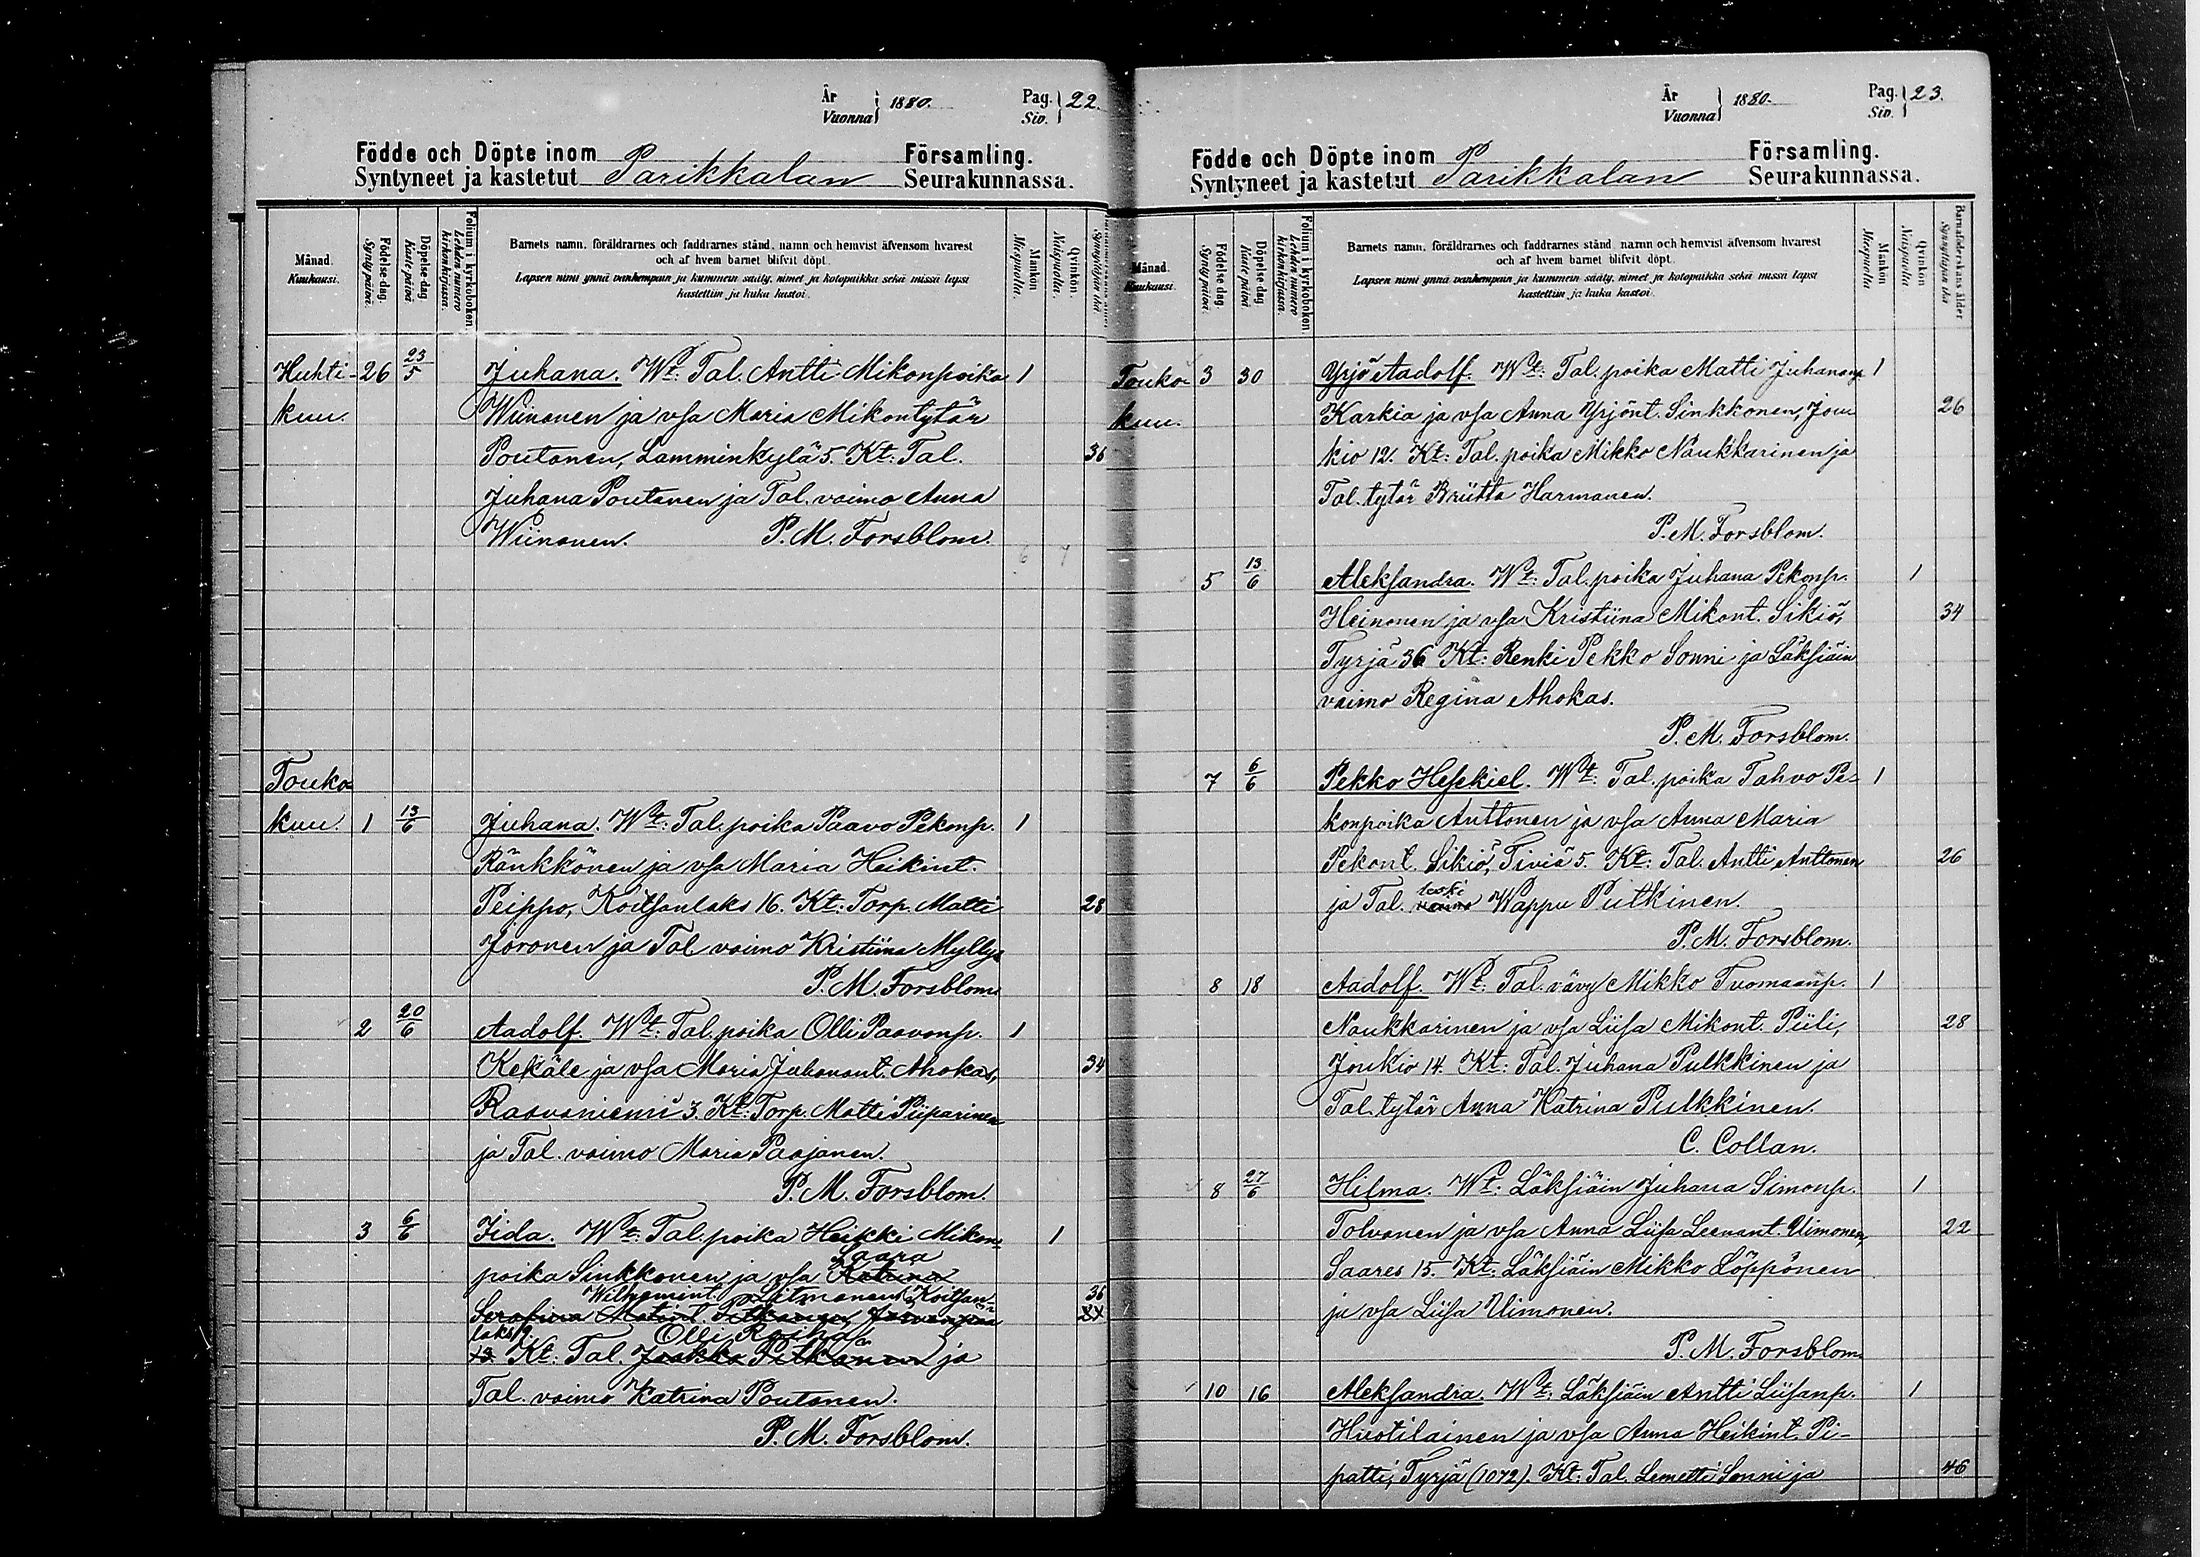 År
Vuonna } 1880. Pag. Siv. } 22.
Födde och Döpte inom Församling.
Syntyneet ja kastetut Parikkalan Seurakunnassa.
Månad. Kuukausi.
Födelse-dag. Syntypäivä.
Döpelse-dag. Kaste-päivä
Folium i kyrkoboken. Lehden numero kirkonkirjassa.
Barnets namn, föräldrarnes och faddrarnes stånd, namn och hemvist äfvensom hvarest
och af hvem barnet blifvit döpt.
Lapsen nimi ynnä vanhempain ja kummein sääty, nimet ja kotopaikka sekä missä lapsi
kastettiin ja kuka kastoi.
Mankön Miespuolia.
Qvinkön. Naispuolia.
Huhti- 26 23/5 Juhana. Wt: Tal. Antti Mikonpoika 1
kuu. Wiinonen ja vsa Maria Mikontytär
Poutanen, Lamminkylä 5. Kt: Tal. 36
Juhana Poutanen ja Tal. vaimo Anna
Wiinonen. P. M. Forsblom.
6 7
Touko-
kuu. 1 13/6 Juhana. Wt: Tal. poika Paavo Pekonp. 1
Ränkkönen ja vsa Maria Heikint.
Peippo, Koitsanlaks 16. Kt: Torp. Matti 28
Joronen ja Tal vaimo Kristiina Myllys
P. M. Forsblom.
2 20/6 Aadolf. Wt: Tal. poika Olli Paavonp. 1
Kekäle ja vsa Maria Juhanant. Ahokas, 34
Raavaniemi 3. Kt: Torp. Matti Piiparinen
ja Tal. vaimo Maria Paajanen.
P. M. Forsblom.
3 6/6 Iida. Wt: Tal. poika Heikki Mikon- 1
Saara
poika Sinkkonen ja vsa Katrina
Wilhelmint. Litmanen, Koitsan- 36
Serafina Matint. Pitkänen,
laks 19. Olli Raiha
13 Kt: Tal. Jaakko Pitkänen ja
Tal. vaimo Katrina Poutanen.
P. M. Forsblom.
År
Vuonna } 1880. Pag. Siv. } 23.
Födde och Döpte inom Församling.
Syntyneet ja kastetut Parikkalan Seurakunnassa.
Månad. Kuukausi.
Födelse-dag. Syntypäivä.
Döpelse-dag. Kaste-päivä
Folium i kyrkoboken. Lehden numero kirkonkirjassa.
Barnets namn, föräldrarnes och faddrarnes stånd, namn och hemvist äfvensom hvarest
och af hvem barnet blifvit döpt.
Lapsen nimi ynnä vanhempain ja kummein sääty, nimet ja kotopaikka sekä missä lapsi
kastettiin ja kuka kastoi.
Mankön Miespuolia
Qvinkön Naispuolia
Barnaföderskans ålder Synnyttäjän ikä
Touko- 3 30 Yrjö Aadolf. Wt: Tal. poika Matti Juhananp. 1
kuu. Karkia ja vsa Anna Yrjönt. Sinkkonen, Jou 26
kio 12. Kt: Tal. poika Mikko Naukkarinen ja
Tal. tytär Briitta Harmanen.
P. M. Forsblom.
5 13/6 Aleksandra. Wt: Tal. poika Juhana Pekonp. 1
Heinonen ja vsa Kristiina Mikont. Sikiö, 34
Tyrjä 36 Kt: Renki Pekko Sonni ja Läksiäin
vaimo Regina Ahokas.
P. M. Forsblom.
7 6/6 Pekko Hesekiel. Wt: Tal. poika Tahvo Pe- 1
konpoika Anttonen ja vsa Anna Maria
Pekont. Sikiö, Tiviä 5. Kt: Tal. Antti Anttonen 26
leski
ja Tal. vaimo Wappu Putkinen.
P. M. Forsblom.
8 18 Aadolf. Wt: Tal. vävy Mikko Tuomaanp. 1
Naukkarinen ja vsa Liisa Mikont. Piili, 28
Joukio 14. Kt: Tal. Juhana Pulkkinen ja
Tal. tytär Anna Katrina Pulkkinen.
C. Collan.
8 27/6 Hilma. Wt: Läksiäin Juhana Simonp. 1
Tolvanen ja vsa Anna Liisa Leenant. Uimonen, 22
Saares 15. Kt: Läksiäin Mikko Löppönen
ja vsa Liisa Uimonen.
P. M. Forsblom.
10 16 Aleksandra. Wt: Läksiäin Antti Liisanp. 1
Huotilainen ja vsa Anna Heikint. Pi-
patti, Tyrjä (1072). Kt: Tal. Lemetti Sonni ja 46